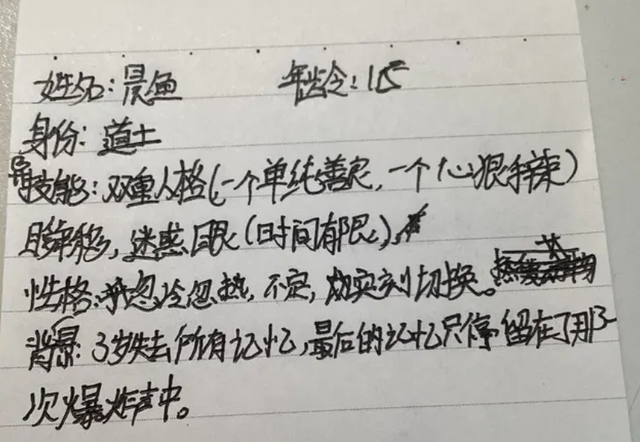 姓名:晨鱼 年龄:15
身份:道士
技能:双重人格(一个单纯善良,一个心狠手辣)
瞬移,迷惑眼(时间有限)。
性格:忽冷忽热,不定,切换。
背景:3岁失去所有记忆,最后的记忆只停留在了那一
次爆炸声中。